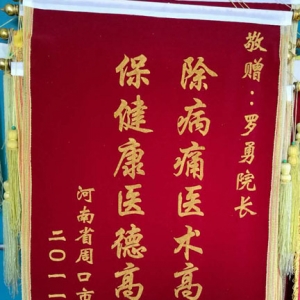 敬赠：罗勇院长
除病痛医术高
保健康医德高
河南省周口市
二〇一一